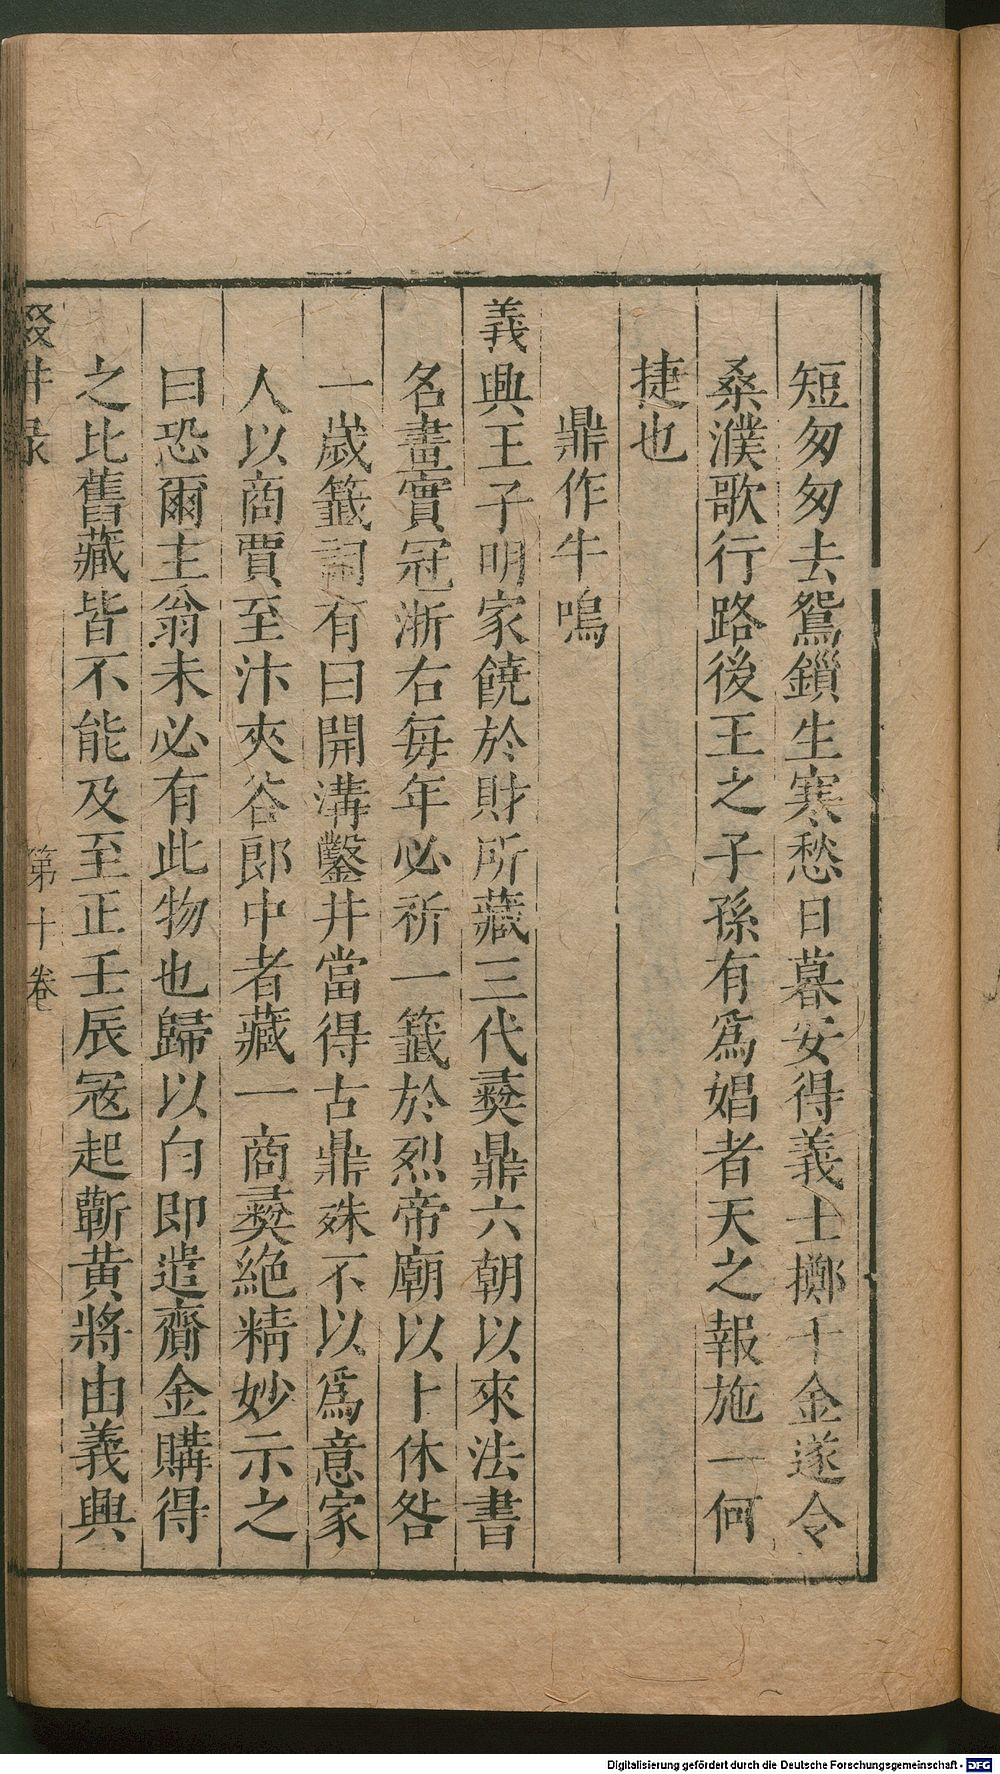 短匆匆去鴛鎖生寒愁日暮安得義士擲千金遂令
桑濮歌行路後王之子孫有爲娼者天之報施一何
捷也
鼎作牛鳴
義興王子明家饒於財所藏三代彝鼎六朝以來法書
名畫實冠浙右每年必祈一籤於烈帝廟以卜休咎
一歲籤詞有曰開溝鑿井當得古鼎殊不以爲意家
人以商賈至汴夾谷郎中者藏一商彝絶精妙示之
曰恐爾主翁未必有此物也歸以白即遣齎金購得
之比舊藏皆不能及至正壬辰寇起蘄黃將由義興
輟耕录
第十卷
Digitalisierung gefördert durch die Deutsche Forschungsgemeinschaft - DFG